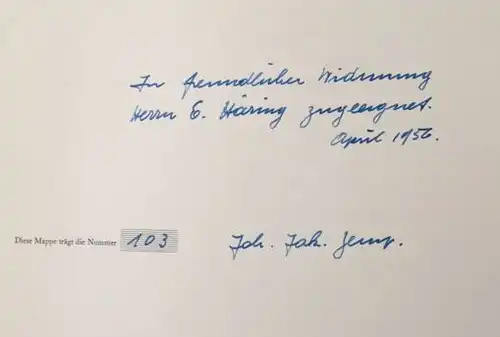 In freundlicher Widmung
Herrn E. Häring zugeeignet.
April 1956.
Diese Mappe trägt die Nummer 103
Joh. Jak. Jenny.